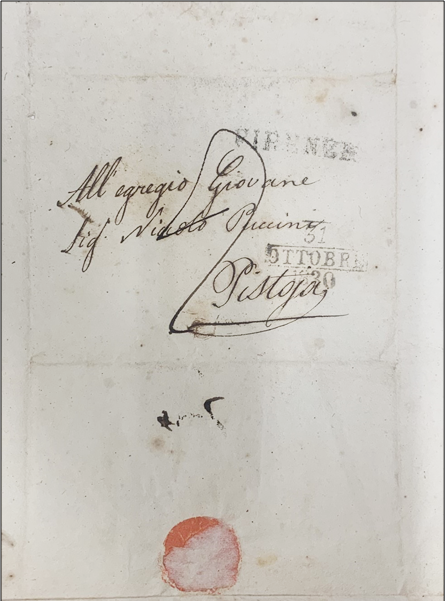 FIRENZE
All'egregio Giovane
Sig. Nicolo Puccini
2
31
OTTOBRE
20
Pistoja